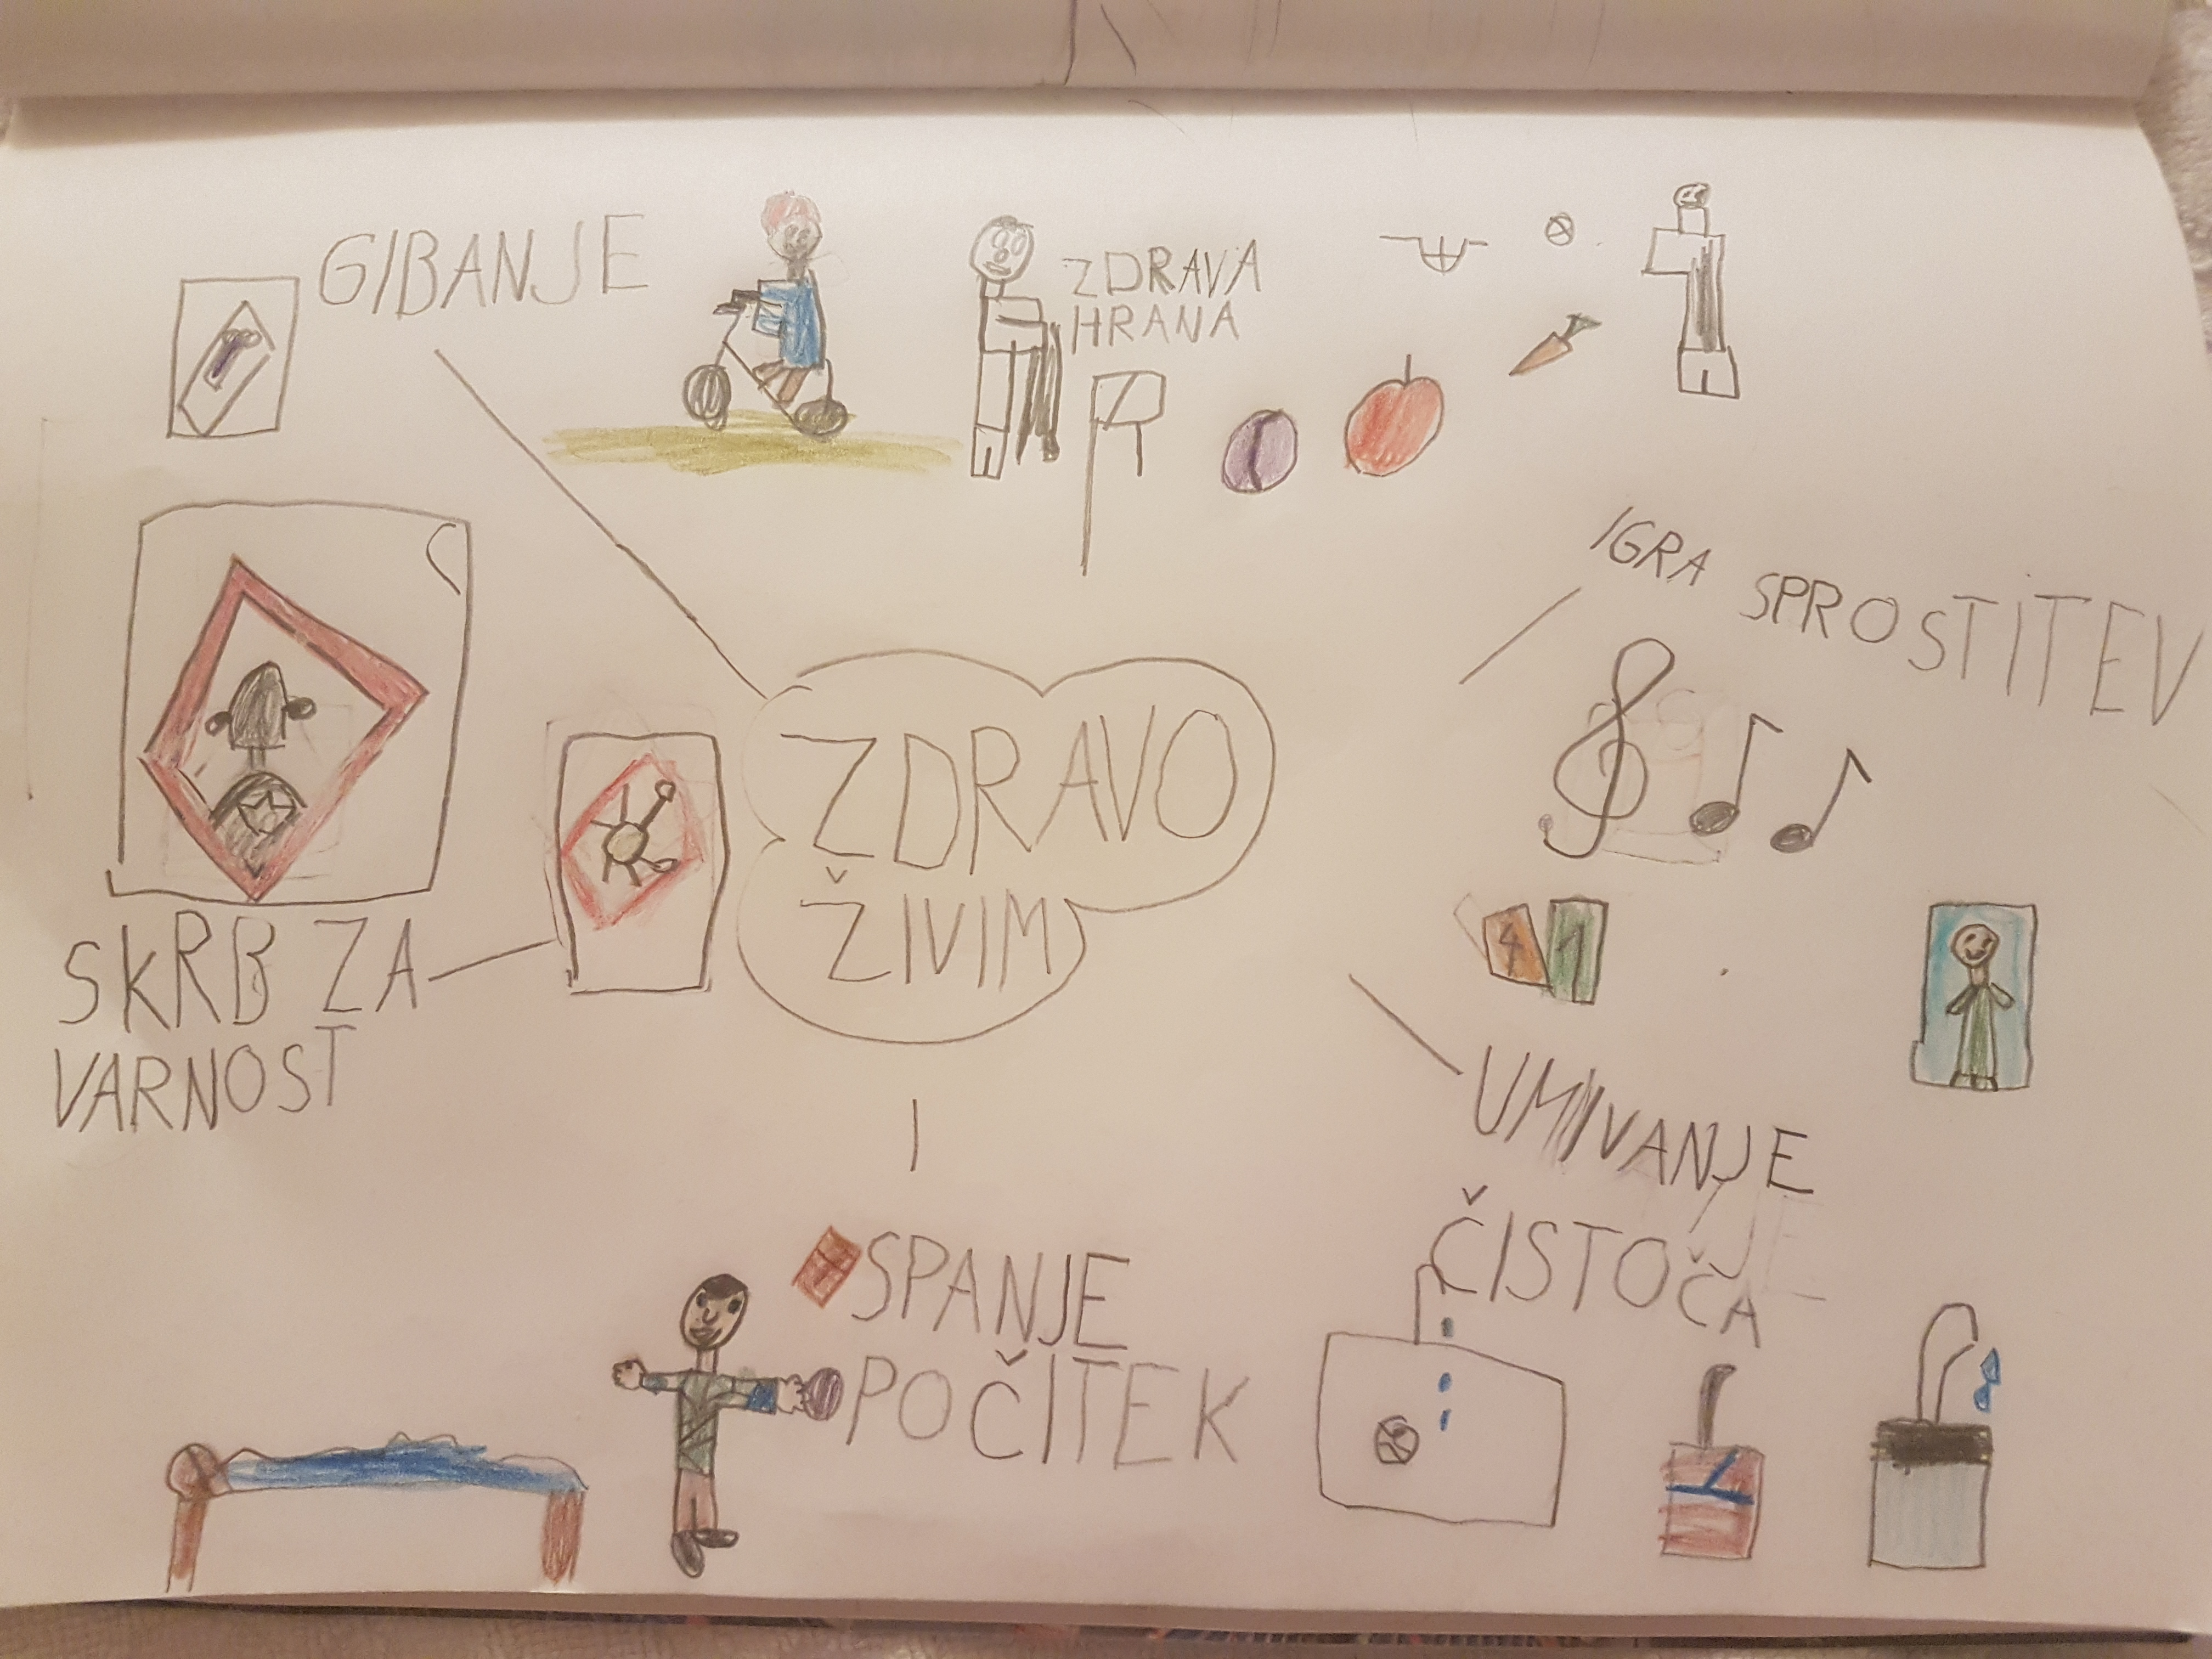 GIBANJE
ZDRAVA
HRANA
IGRA SPROSTITEV
ZDRAVO
ŽIVIM
SKRB ZA
VARNOST
4 1
UMIVANJE
ČISTOČA
SPANJE
POČITEK